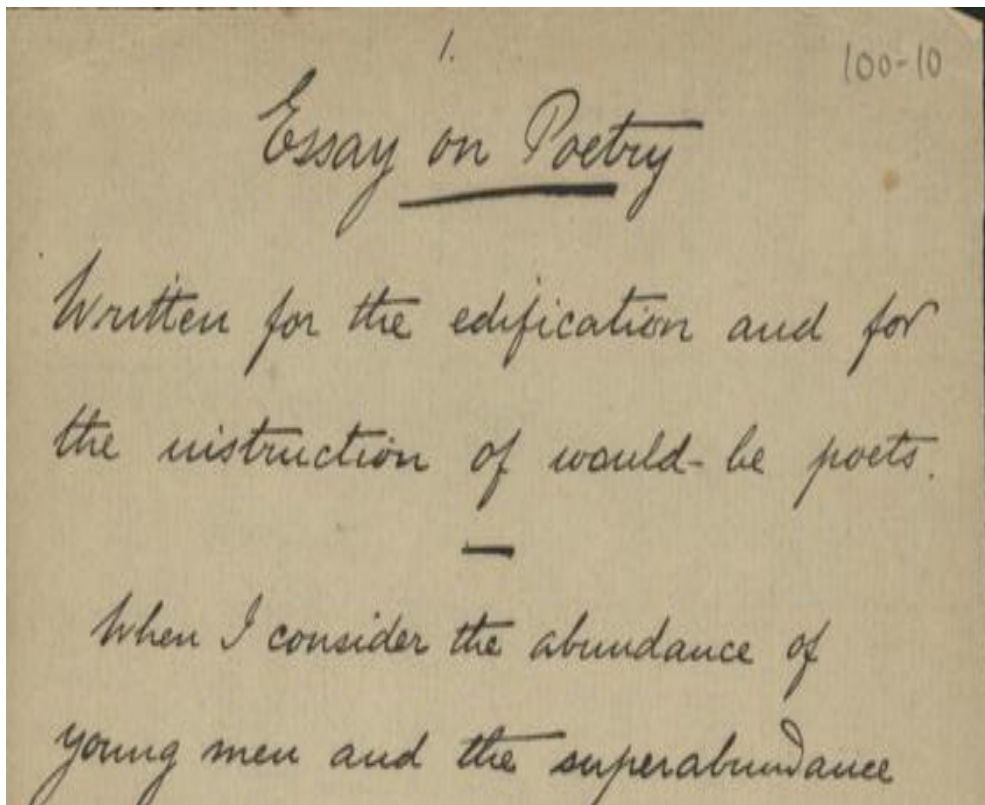 1.
100-10
Essay on Poetry
Written for the edification and for
the instruction of would-be poets.
When I consider the abundance of
young men and the superabundance